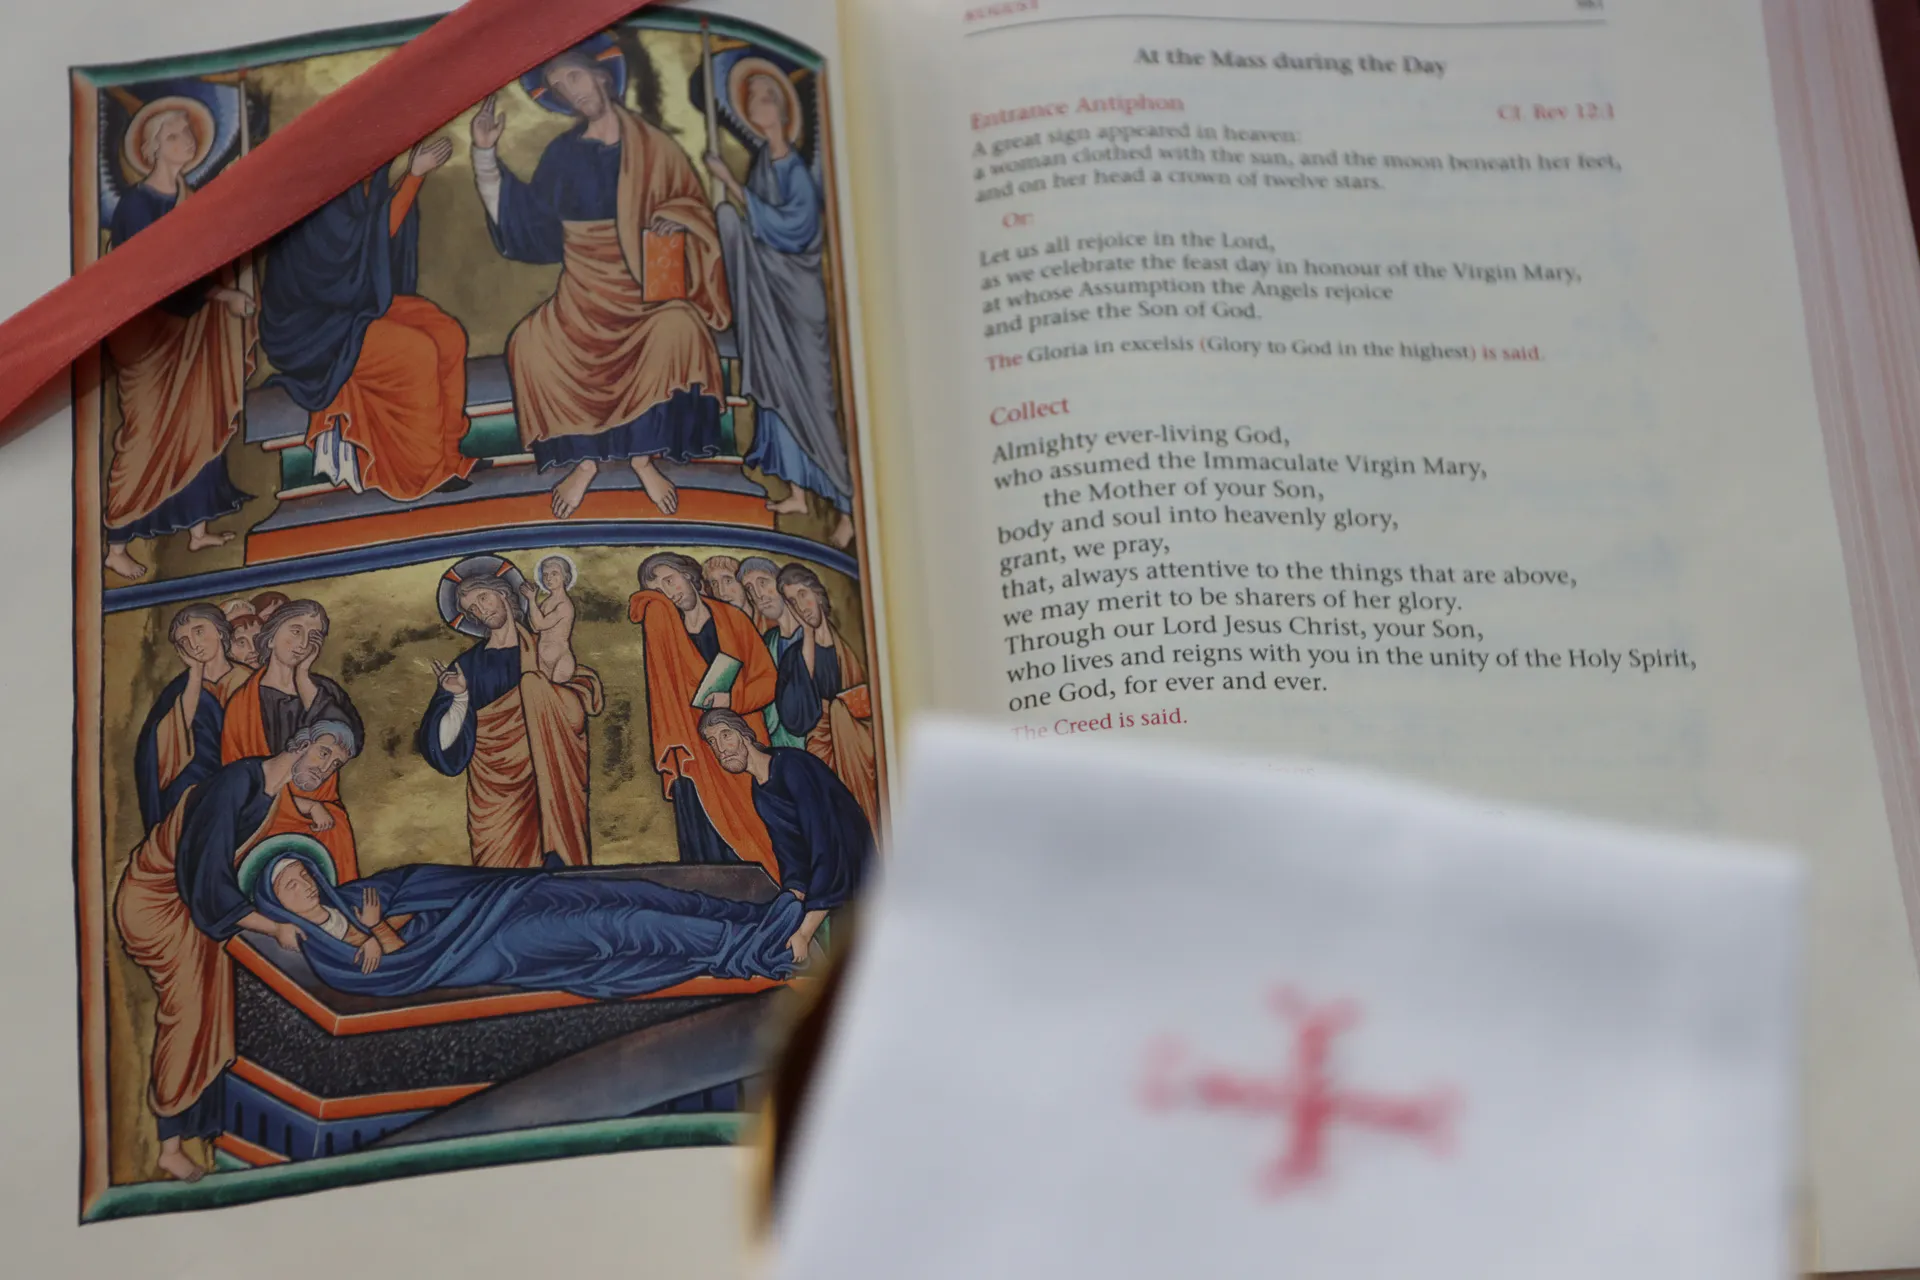 AUGUST
At the Mass during the Day
Entrance Antiphon Cf. Rev 12:1
A great sign appeared in heaven:
a woman clothed with the sun, and the moon beneath her feet,
and on her head a crown of twelve stars.
Or:
Let us all rejoice in the Lord,
as we celebrate the feast day in honour of the Virgin Mary,
at whose Assumption the Angels rejoice
and praise the Son of God.
The Gloria in excelsis (Glory to God in the highest) is said.
Collect
Almighty ever-living God,
who assumed the Immaculate Virgin Mary,
the Mother of your Son,
body and soul into heavenly glory,
grant, we pray,
that, always attentive to the things that are above,
we may merit to be sharers of her glory.
Through our Lord Jesus Christ, your Son,
who lives and reigns with you in the unity of the Holy Spirit,
one God, for ever and ever.
The Creed is said.